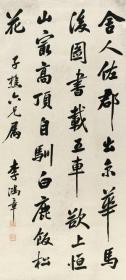 舍人佐郡出京華馬
後圖書載五車欲上恒
山最高頂自馴白鹿飯松
花
子 六兄屬 李鴻章